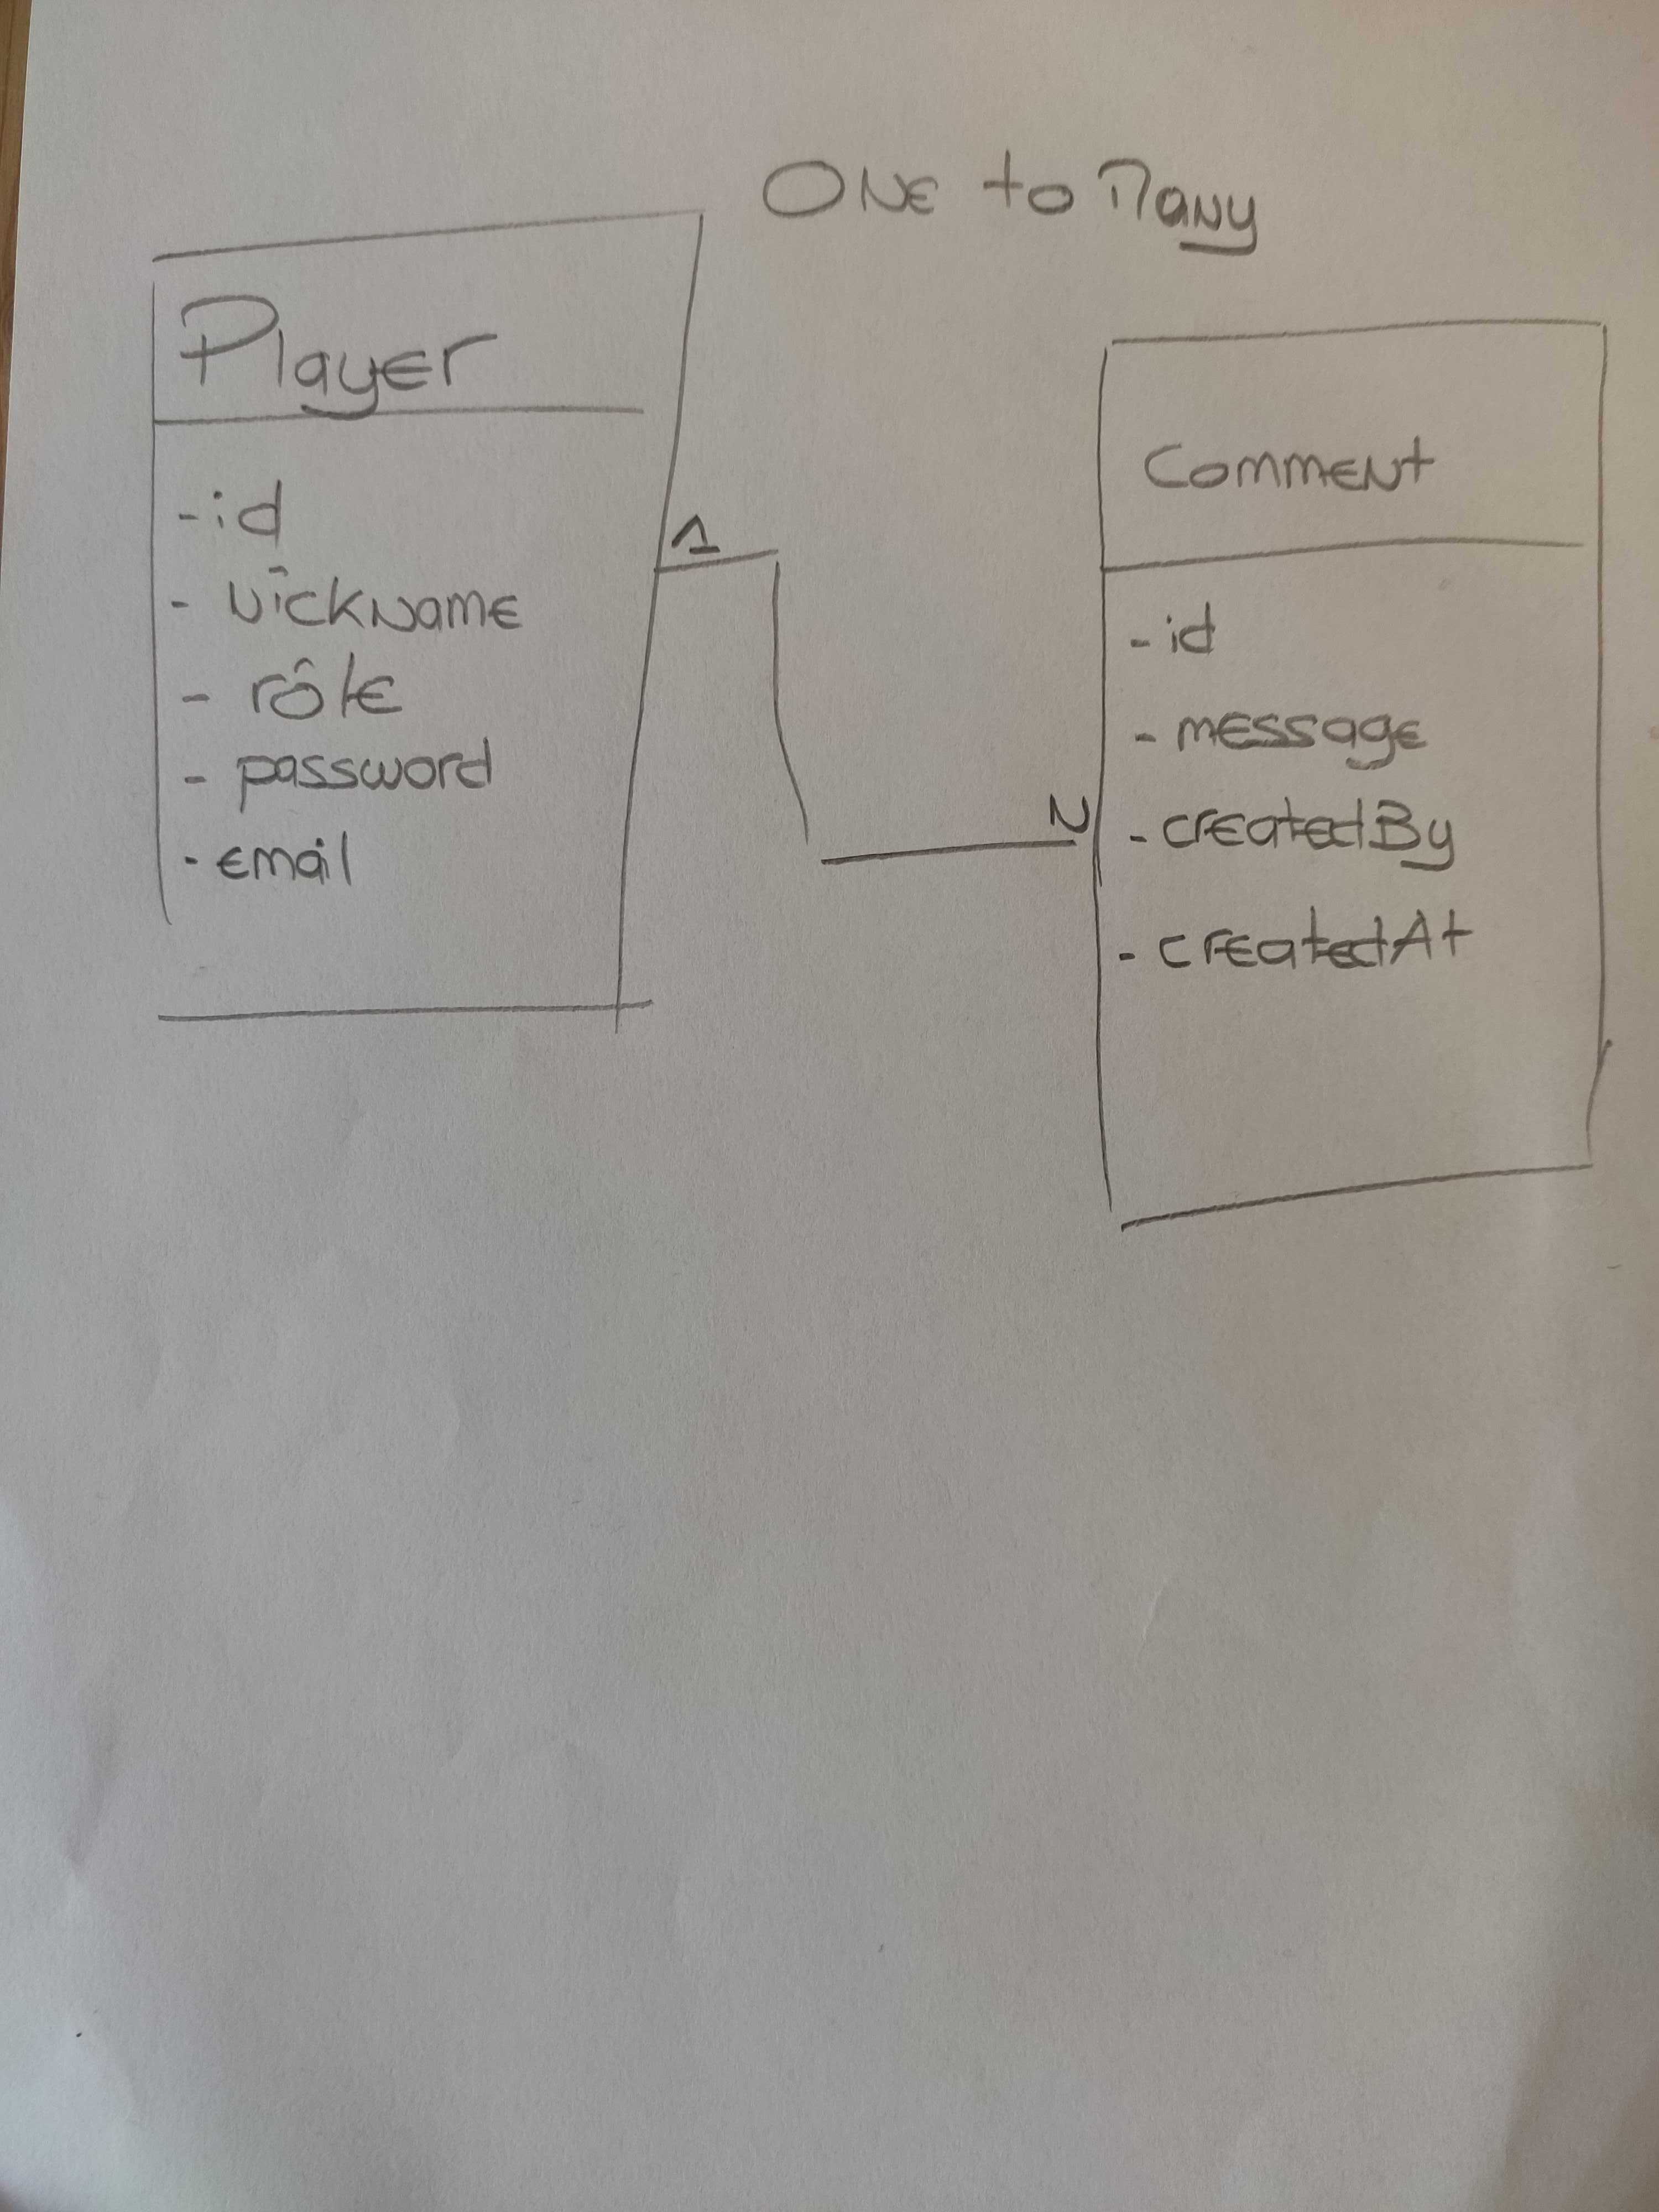 ONE to Many
Player
- id
- nickname
- rôle
- password
- email
1
N
Comment
- id
- message
- createdBy
- createdAt